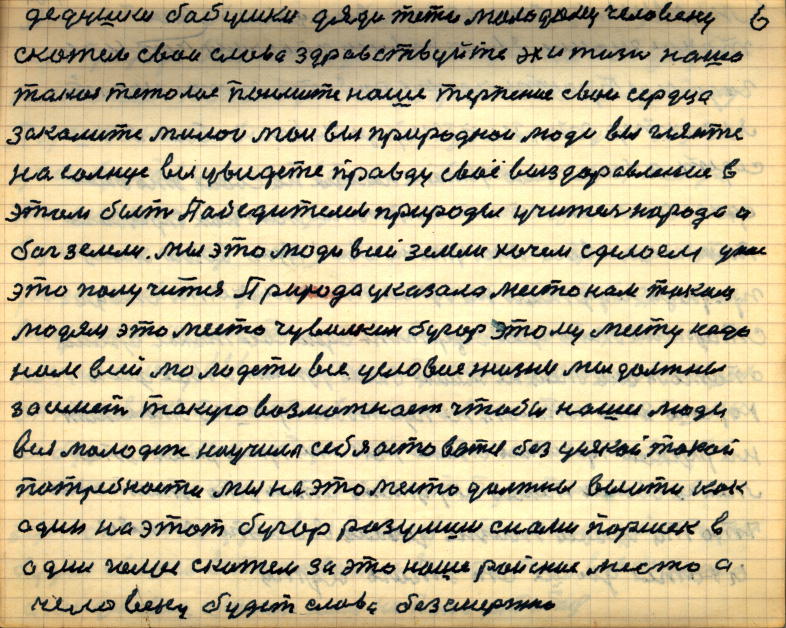 дедушки бабушки дяди тети молодому человеку 6
скажем свои слова здравствуйте жизня наша
такая поймите наше терпение свои сердца
закалите милои мои вы природнои люди вы гляньте
на солнце вы увидете правду своё выздоравление в
этом быть Пабедителем природы учителя народа и
бог земли. мы это люди всей земли хочем сделаем у нас
это получится Природа указала место нам таким
людям это место чувилкин бугор этому месту надо
нам всей молодости все условие жизни мы должны
заиметь такую возможность чтобы наши люди
вся молодеж научила себя оставатся без усякой такой
потребности мы на это место должны выити как
один на этот бугор разуцица снами поршек в
один голос скажем за это наше райские место а
человеку будет слава безсмертно